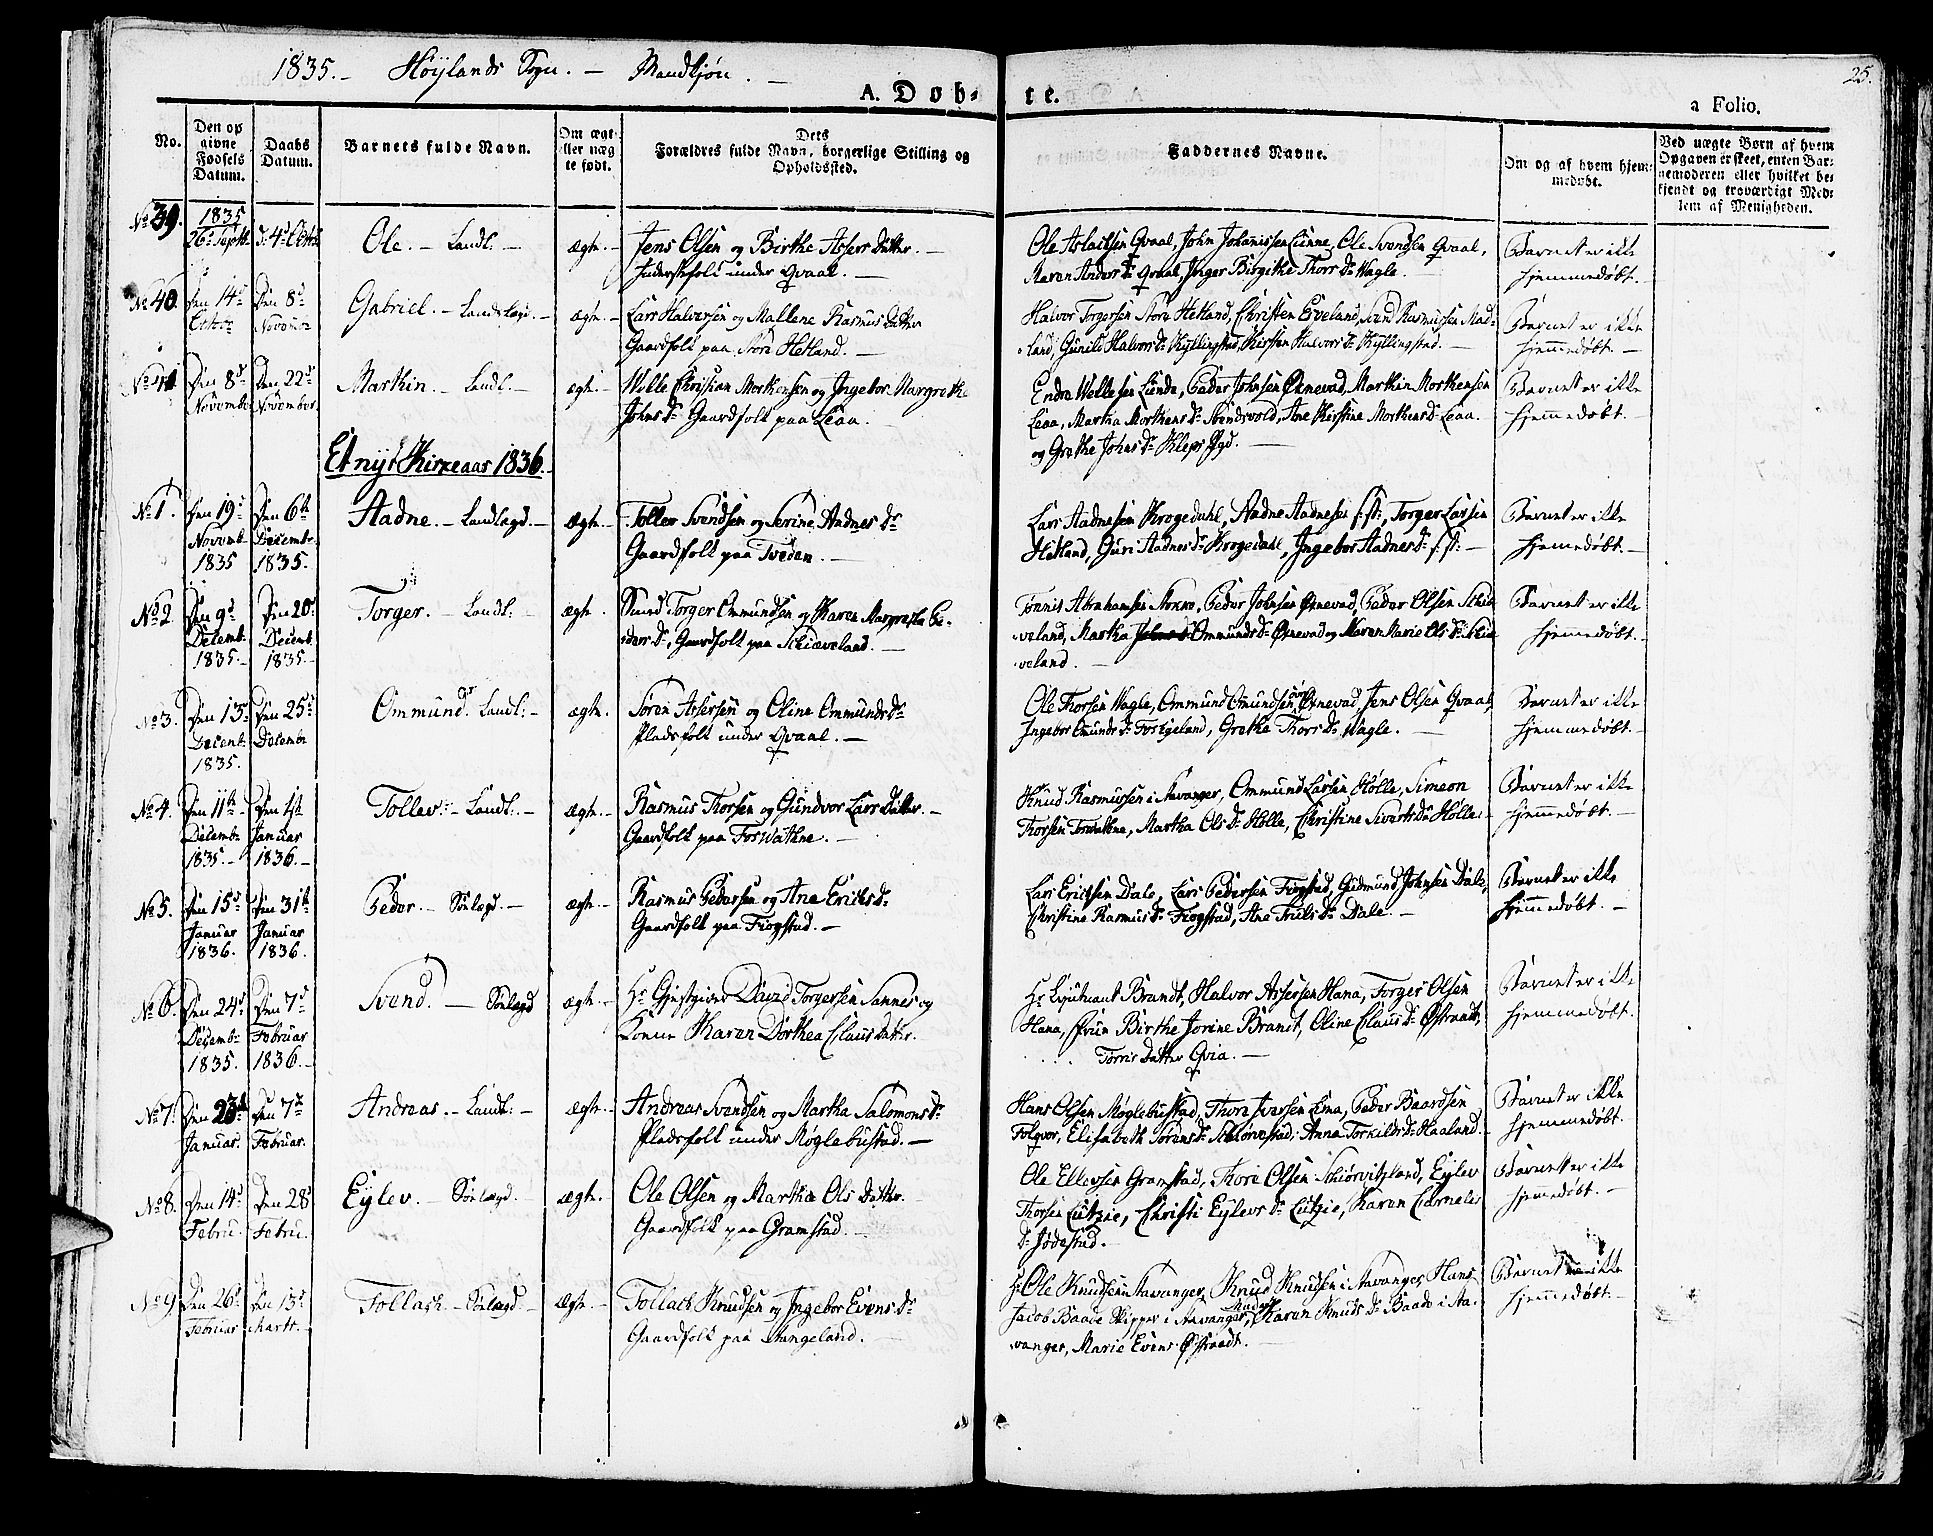 1835.- Höylands Sogn. - Mandkjøn. -
25.
A. Døb-te.
a Folio.
No.
Den op
givne
Fødsels
Datum.
Daabs
Datum.
Barnets fulde Navn.
Om ægte
eller uæg
te født.
Dets
Forældres fulde Navn, borgerlige Stilling og
Opholdssted.
Faddernes Navne.
Om og af hvem hjem-
medøbt.
Ved uægte Børn af hvem
Opgaven er skeet, enten Bar-
nemoderen eller hvilket be-
kjendt og troværdigt Med-
lem af Menigheden.
No 39.
1835
26 Septb.
d: 4 Octb
Ole. - Landl. -
ægte. -
Jens Olsen og Birthe Assers Datter. -
Inderstefolk under Qvaal. -
Ole Aslachsen Qvaal, John Johannissen Lunne, Ole Svendsen Qvaal,
Maren Anders Dr Qvaal, Inger Birgithe Thors Dr Wagle.
Barnet er ikke
hjemmedøbt. -
No 40
Den 14d
Octob
Den 8d
Novemb
Gabriel. - Landlægd. -
ægte. -
Lars Halversen og Mallene Rasmus Datter
Gaardfolk paa Store Hetland. -
Halvor Torgersen Store Hetland, Christen Eveland, Svend Rasmussen Mad-
land, Gunild Halvors Dr Kyllingstad, Kirsten Halvors Dr Kyllingstad. -
Barnet er ikke
hjemmedøbt. -
No 41
Den 8d
Novemb
Den 22d
November
Marthin. - Landl. -
ægte. -
Welle Christian Morthensen og Ingebor Margrethe
Johns Dr Gaardfolk paa Leaa.
Endre Wellesen Lunde, Peder Johnsen Øxnevad, Marthin Morthensen
Leaa, Martha Morthens Dr Svendsvold, Ane Kirstine Morthens Dr Leaa.
og Grethe Johns Dr Kleps Pgd. -
Barnet er ikke
hjemmedøbt. -
Et nyt Kirkeaar 1836.
No 1.
Den 19d
Novemb.
1835
Den 6th
Decemb.
1835.
Aadne. - Landlægd. -
ægte. -
Tollev Svendsen og Serine Aadnes Dr
Gaardfolk paa Tveden. -
Lars Aadnesen Krogedahl, Aadne Aadnesen f: st:, Torger Larsen
Hetland, Guri Aadnes Dr Krogedahl, Ingebor Aadnes Dr f: st: -
Barnet er ikke
hjemmedøbt. -
No 2
Den 9d
Decemb.
1835. -
Den 20d
Decemb.
1835. -
Torger. - Landl: -
ægte.
Svend Torger Ommundsen og Karen Margrethe Pe-
ders Dr, Gaardfolk paa Schiæveland. -
Tønnis Abrahamsen Stokke, Peder Johnsen Øxnevad, Peder Olsen Schiæ-
veland, Martha Ommunds Dr Øxnevad og Maren Marie Ols Dr Schiæ-
veland. -
Barnet er ikke
hjemmedøbt. -
No 3.
Den 13d
Decemb.
1835.
Den 25d
Decemb
Ommund. Landl: -
ægte.
Søren Assersen og Oline Ommunds Dr
Pladsfolk under Qvaal. -
Ole Thorsen Wagle, Ommund Omundsen Øxnevad, Jens Olsen Qvaal,
Ingebor Omunds Dr Foshigeland, Grethe Thors Dr Wagle. -
Barnet er ikke
hjemmedøbt. -
No 4.
Den 11th
Decemb
1835. -
Den 1st
Januar
1836. -
Tollev. - Landl: -
ægte. -
Rasmus Thorsen og Gundvor Lars Datter. -
Gaardfolk paa Foswathne. -
Knud Rasmussen i Stavanger, Ommund Larsen Hølle, Simeon
Thorsen Foswathne, Martha Ols Dr Hølle, Christine Siverts Dr Hølle. -
Barnet er ikke
hjemmedøbt. -
No 5.
Den 15d
Januar
1836.
Den 31th
Januar
1836.
Peder. - Sønlægd. -
ægte. -
Rasmus Pedersen og Ane Eriks Dr
Gaardfolk paa Fiogstad. -
Lars Erichsen Dale, Lars Pedersen Fiogstad, Gudmund Johnsen Dale,
Christine Rasmus Dr Fiogstad, Ane Truls Dr Dale. -
Barnet er ikke
hjemmedøbt. -
No 6.
Den 24d
Decemb
1835.
Den 7d
Februar
1836. -
Svend. - Sønlægd
ægte. -
Hr Gjestgiver David Torgersen Sannes og
Konne Karen Dorthea Claus Datter.
Hr Lieutnant Brandt, Halvor Assersen Hana, Torger Olsen
Hana, Frue Birthe Jorine Brandt, Oline Claus Dr Østraadt,
Torris Datter Qvia. -
Barnet er ikke
hjemmedøbt.
No 7.
Den 23d
Januar.
Den 7d
Februar.
Andreas. - Landl: -
ægte. -
Andreas Svendsen og Martha Salomons Dr
Pladsfolk under Møglebustad. -
Hans Olsen Møglebustad, Thore Iversen Lima, Peder Baardsen
Folqvor, Elisabeth Sørens Dr Schiørestad, Anna Torkilds Dr Haaland.
Barnet er ikke
hjemmedøbt.
No 8.
Den 14d
Febru.
Den 28d
Febru.
Eylev. - Sønlægd.
ægte.
Ole Olsen og Martha Ols Datter.
Gaardfolk paa Gramstad. -
Ole Ellevsen Gramstad, Thore Olsen Schiørvitzland, Eylev
Thorsen Lutzie, Christi Eylevs Dr Lutzie, Karen Cornelis
Dr Jødestad. -
Barnet er ikke
hjemmedøbt. -
No 9.
Den 26d
Februar
Den 13d
Marts. -
Tollach. - Sønlægd. -
ægte. -
Tollach Knudsen og Ingebor Evens Dr
Gaardfolk paa Stangeland. -
Hr Ole Knudsen Stavanger, Knud Knudsen i Stavanger, Hans
Jacob Baade Skipper i Stavanger, Karen Knuds Dr Baade i Sta-
vanger, Marie Evens Østraadt. -
Barnet er ikke
hjemmedøbt. -